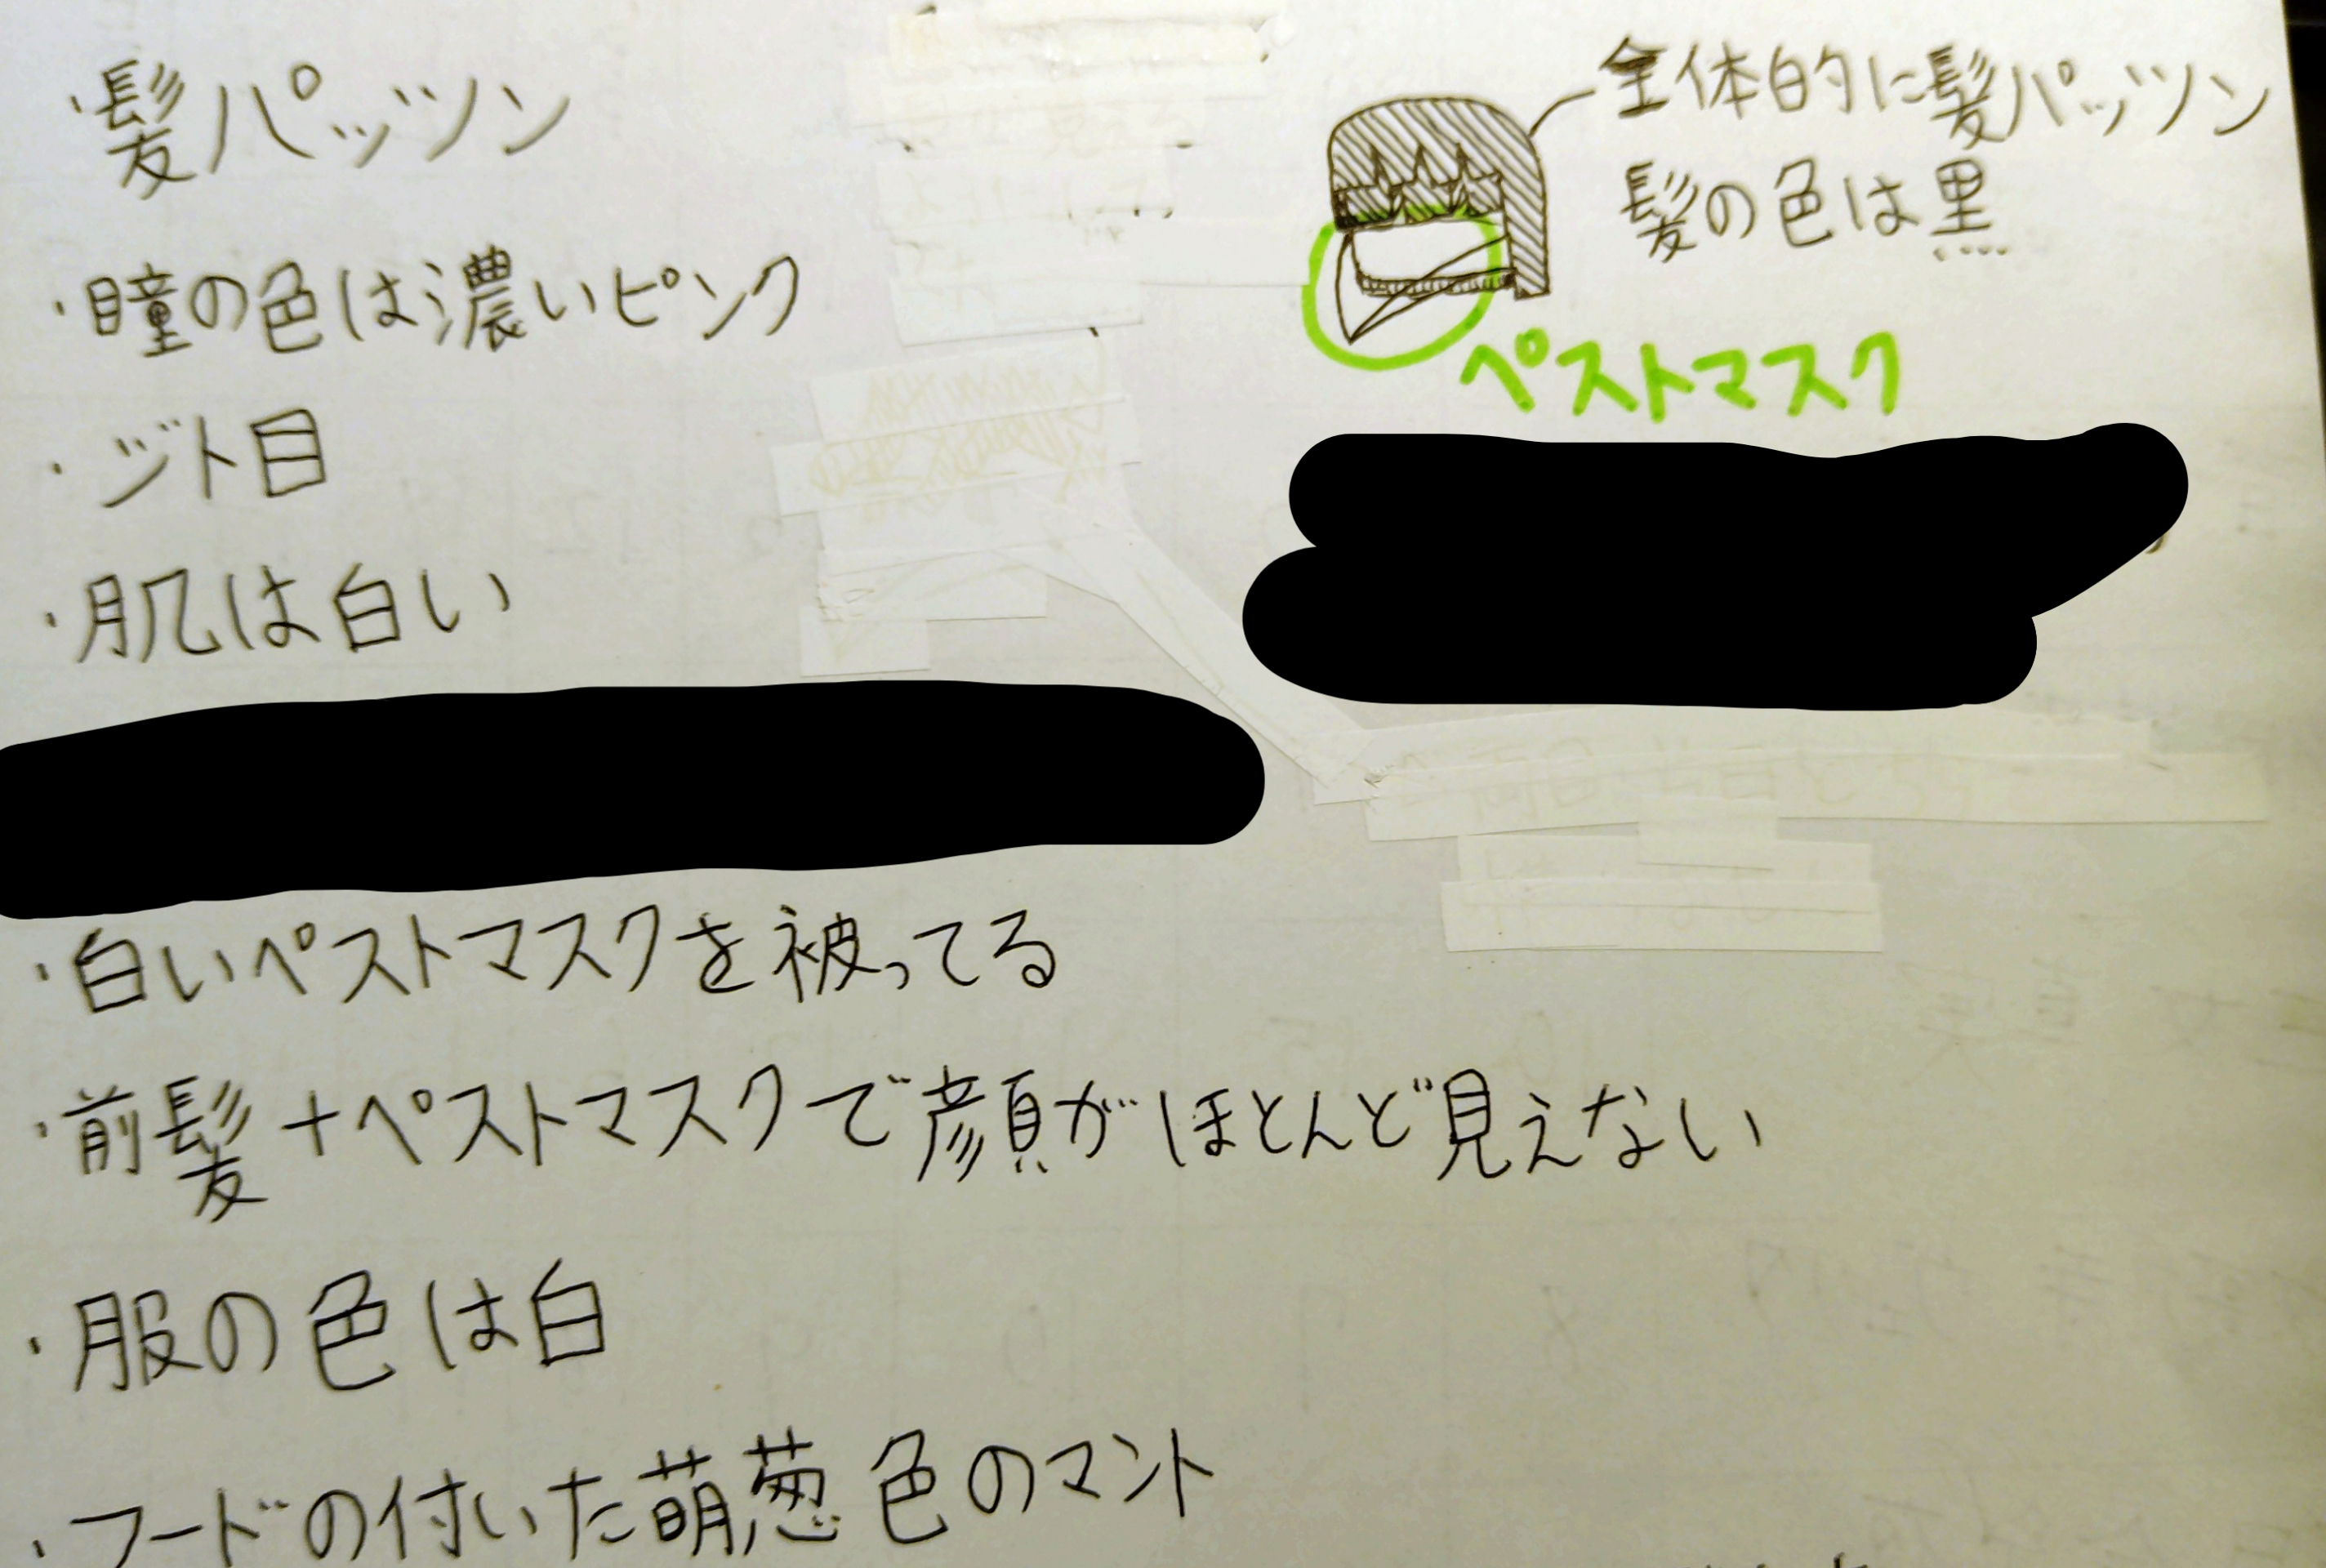 ・髪パッツン
・瞳の色は濃いピンク
・ジト目
・肌は白い
・白いペストマスクを被ってる
・前髪+ペストマスクで顔がほとんど見えない
・服の色は白
・フードの付いた萌葱色のマント
全体的に髪パッツン
髪の色は黒
ペストマスク